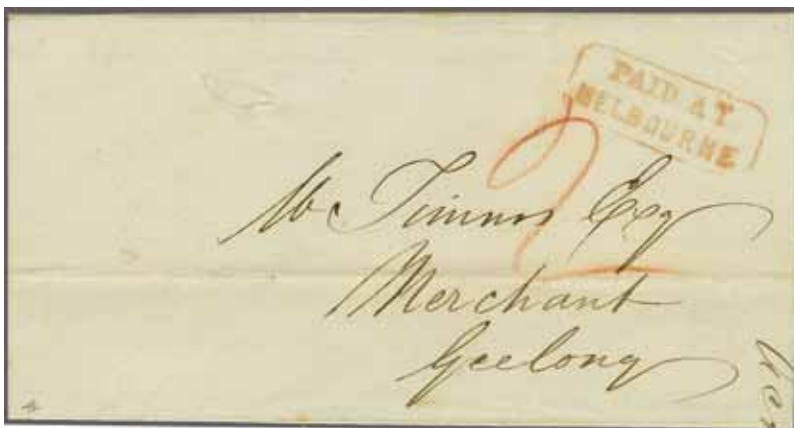 PAID AT
MELBOURNE
2
Timms Esq
Merchant
Geelong